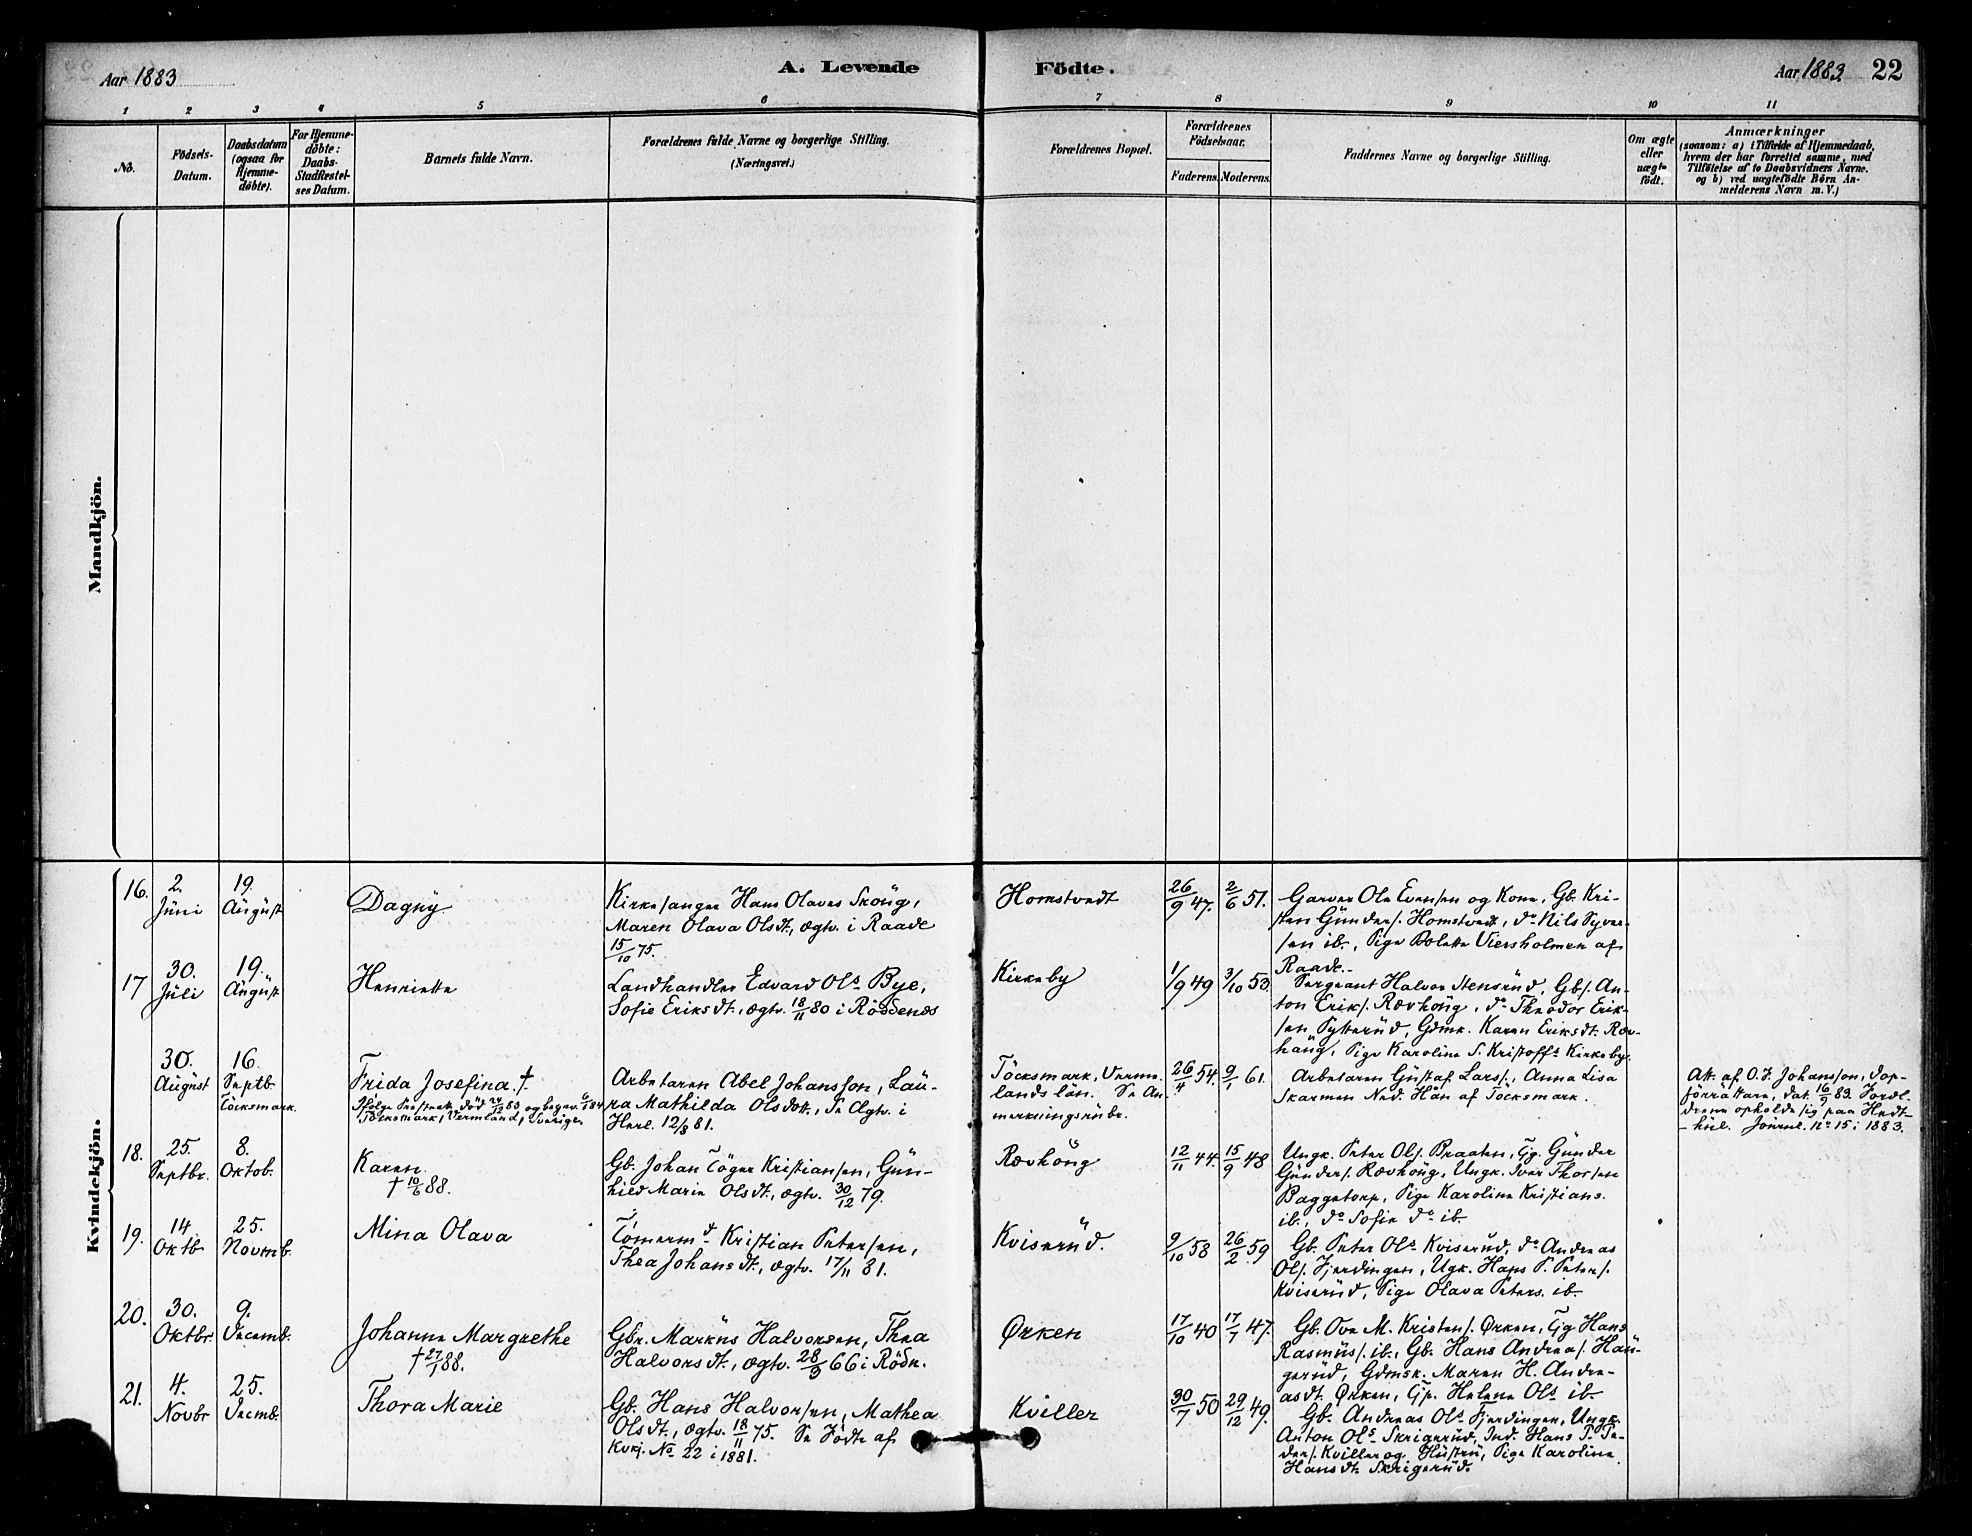 Aar 1883
A. Levende
Födte.
Aar 1883. 22
1 2 3 4 5 6 7 8 9 10 11
No.
Födsels-
Datum.
Daabsdatum
(ogsaa for
Hjemme-
döbte).
For Hjemme-
døbte:
Daabs-
Stadfæstel-
ses Datum.
Barnets fulde Navn.
Forældrenes fulde Navne og borgerlige Stilling.
(Næringsvei.)
Forældrenes Bopæl.
Forældrenes
Födselsaar.
Faderens. Moderens.
Faddernes Navne og borgerlige Stilling.
Om ægte
eller
uægte
födt.
Anmærkninger
(saasom: a) i Tilfælde af Hjemmedaab,
hvem der har forrettet samme, med
Tilföielse af to Daabsvidners Navne.
og b) ved uægtefödte Börn An-
melderens Navn m. V.)
Mandkjön.
Kvindekjön.
16.
2.
Júni
19.
Aúgúst
Dagny
Kirkesanger Hans Olaves Skoúg,
Maren Olava Olsdt., ægtv. i Raade
15/10 75.
Homstvedt
26/9 47.
2/6 51.
Garver Ole Evensen og Kone, Gb. Kri-
sten Gúnders. Homstvedt, do Nils Syver-
sen ib., Pige Bolette Viersholmen af
Raade.
17
30.
Júli
19.
Aúgúst
Henriette
Landhandler Edvard Ols. Bye,
Sofie Eriksdt., ægtv. 18/11 80 i Röddenæs
Kirkeby
1/9 49
3/10 53.
Sergeant Halvor Stensrúd, Gbs. An-
ton Eriks. Rævhoúg, do Theodor Erik-
sen Sytterúd, Gdmk. Karen Eriksdt. Ræv-
haúg, Pige Karoline S. Kristoffs Kirkeby.
30.
Aúgúst
16.
Septb.
Töcksmark.
Frida Josefina. †.
Ifölge Præsteatt. död 24/12 83 og begrav. 6/1 84
Töcksmark, Vermland, Sverige.
Arbetaren Abel Johansson, Laú-
ra Mathilda Olsdott., Se Ægtv. i
Herl. 12/8 81.
Töcksmark, Verme-
lands län. Se An-
merkningsrúbr.
26/4 54.
9/1 61.
Arbetaren Gústaf Larss., Anna Lisa
Skarmen Ned. Hän af Töcksmark.
Att. af O. J. Johansson, Dop-
förrättare, dat. 16/9 83. Foræl-
drene opholde sig paa Hedt-
húl. Journl. No 15 i 1883.
18.
25.
Septbr.
8.
Oktob.
Karen
† 10/6 88.
Gb. Johan Töger Kristiansen, Gún-
hild Marie Olsdt., ægtv. 30/12 79.
Rævhoúg
12/11 44.
15/9 48
Ungk. Peter Ols. Braaten, Gg. Gúnder
Gúnders. Rævhoúg, Ungk. Iver Thorsen
Baggetorp, Pige Karoline Kristians.
ib., do Sofie do ib.
19.
14.
Oktb
25.
Novemb.
Mina Olava
Tömermd Kristian Petersen,
Thea Johansdt., ægtv. 17/11 81.
Kviserúd.
9/10 58
26/2 59
Gb. Peter Ols Kviserúd, do Andreas
Ols. Fjerdingen, Ugk. Hans P. Peters.
Kviserúd, Pige Olava Peters. ib.
20.
30.
Oktbr.
9.
Decemb.
Johanne Margrethe
† 27/1 88.
Gbr. Markús Halvorsen, Thea
Halvorsdt., ægtv. 28/3 66 i Rödn.
Ørken
17/10 40
17/7 47.
Gb. Ove M. Kristens. Ørken, Gg Hans
Rasmús. ib., Gb. Hans Andreas. Haú-
gerúd, Gdmsk. Maren H. Andre-
asdt. Ørken, Gp. Helene Ols. ib.
21.
4.
Novbr
25.
Decmb.
Thora Marie
Gb. Hans Halvorsen, Mathea
Olsdt., ægtv. 18/11 75. Se Födte af
Kvkj. No 22 i 1881.
Kviller
30/7 50
29/12 49.
Gb. Andreas Ols Fjerdingen, Ungk.
Anton Ols Skrigerúd, Ind. Hans P. Pe-
ders. Kviller og Hústrú, Pige Karoline
Hansdt. Skrigerúd.